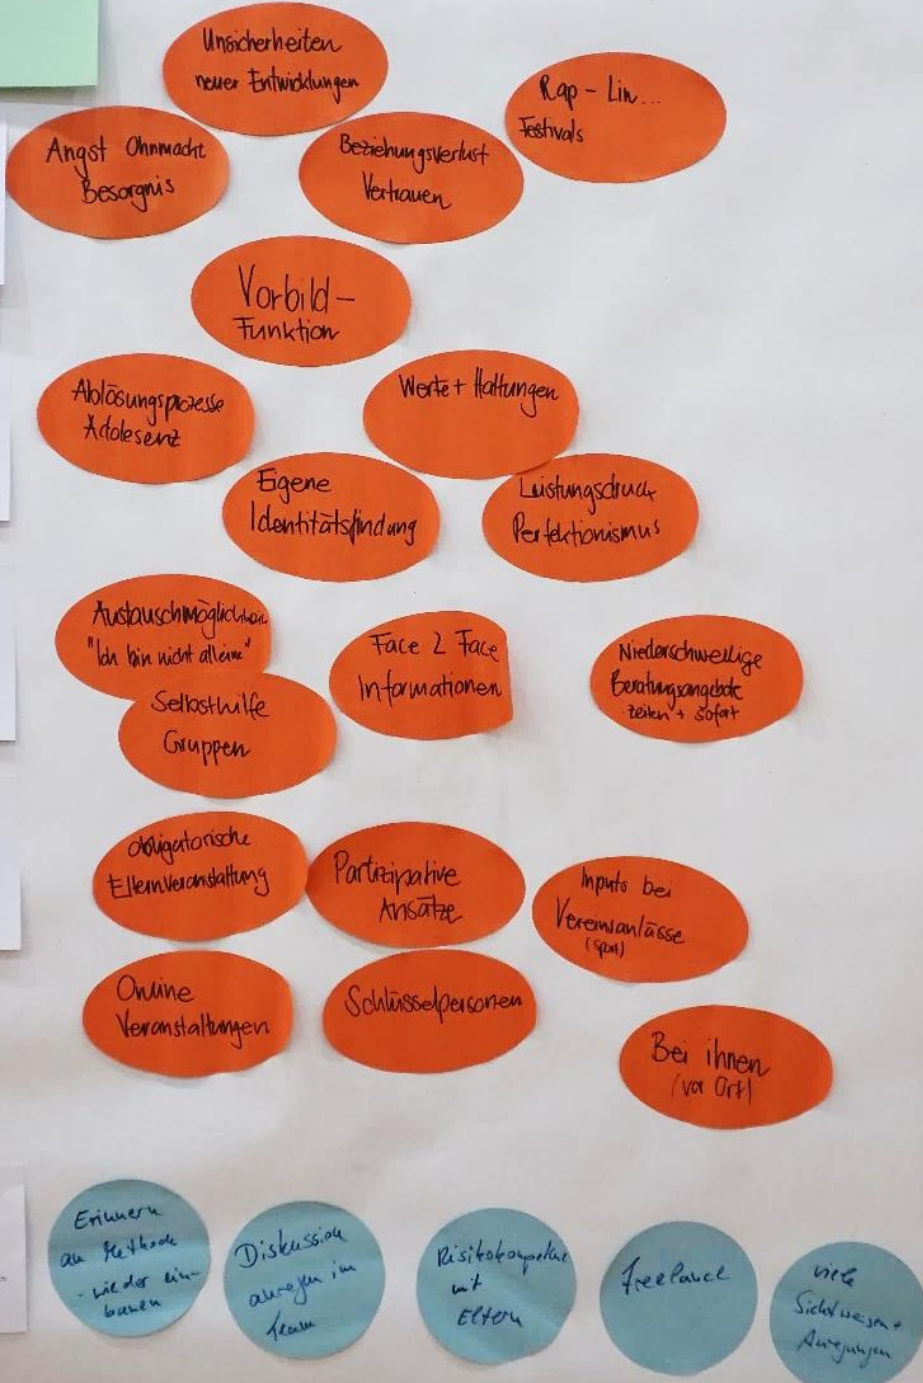 Unsicherheiten
neuer Entwicklungen
Rap - Lin...
Festivals
Angst Ohnmacht
Besorgnis
Beziehungsverlust
Vertrauen
Vorbild-
Funktion
Ablösungsprozesse
Adolesenz
Werte + Haltungen
Eigene
Identitätsfindung
Leistungsdruck
Perfektionismus
"Ich bin nicht alleine"
Selbsthilfe
Gruppen
Face 2 Face
Informationen
Niederschwellige
Beratungsangebote
zeiten + sofort
obligatorische
Elternveranstaltung
Partizipative
Ansätze
Inputs bei
Vereinsanlässe
(Sport)
Online
Veranstaltungen
Schlüsselpersonen
Bei ihnen
(vor Ort)
Erinnern
an Methode
- wieder ein-
bauen
Diskussion
anregen im
Team
Risikokompetenz
mit
Eltern
Freelance
viele
Sichtweisen +
Anregungen